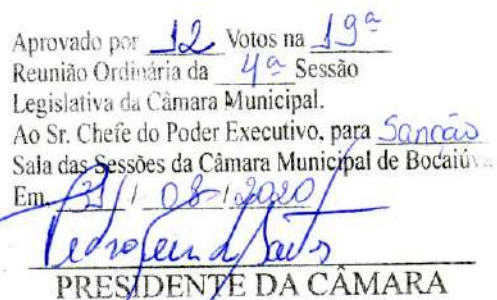 Aprovado por 12 Votos na 19ª
Reunião Ordinária da 4ª Sessão
Legislativa da Câmara Municipal.
Ao Sr. Chefe do Poder Executivo, para Sanção
Sala das Sessões da Câmara Municipal de Bocaiúva
Em, / 08 / 2020
PRESIDENTE DA CÂMARA